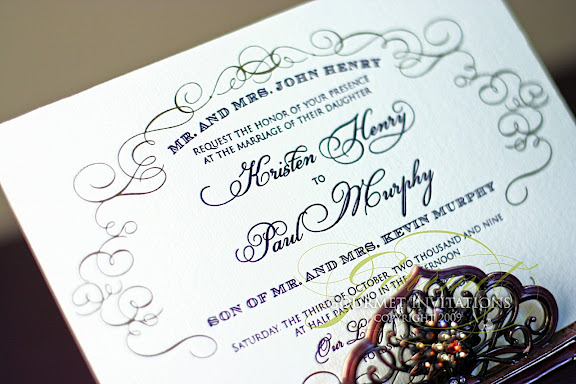 MR. AND MRS. JOHN HENRY
REQUEST THE HONOR OF YOUR PRESENCE
AT THE MARRIAGE OF THEIR DAUGHTER
Kristen Henry
TO
Paul Murphy
SON OF MR. AND MRS. KEVIN MURPHY
SATURDAY, THE THIRD OF OCTOBER, TWO THOUSAND AND NINE
AT HALF PAST TWO IN THE
Our
INVITATIONS
COPYRIGHT 2009